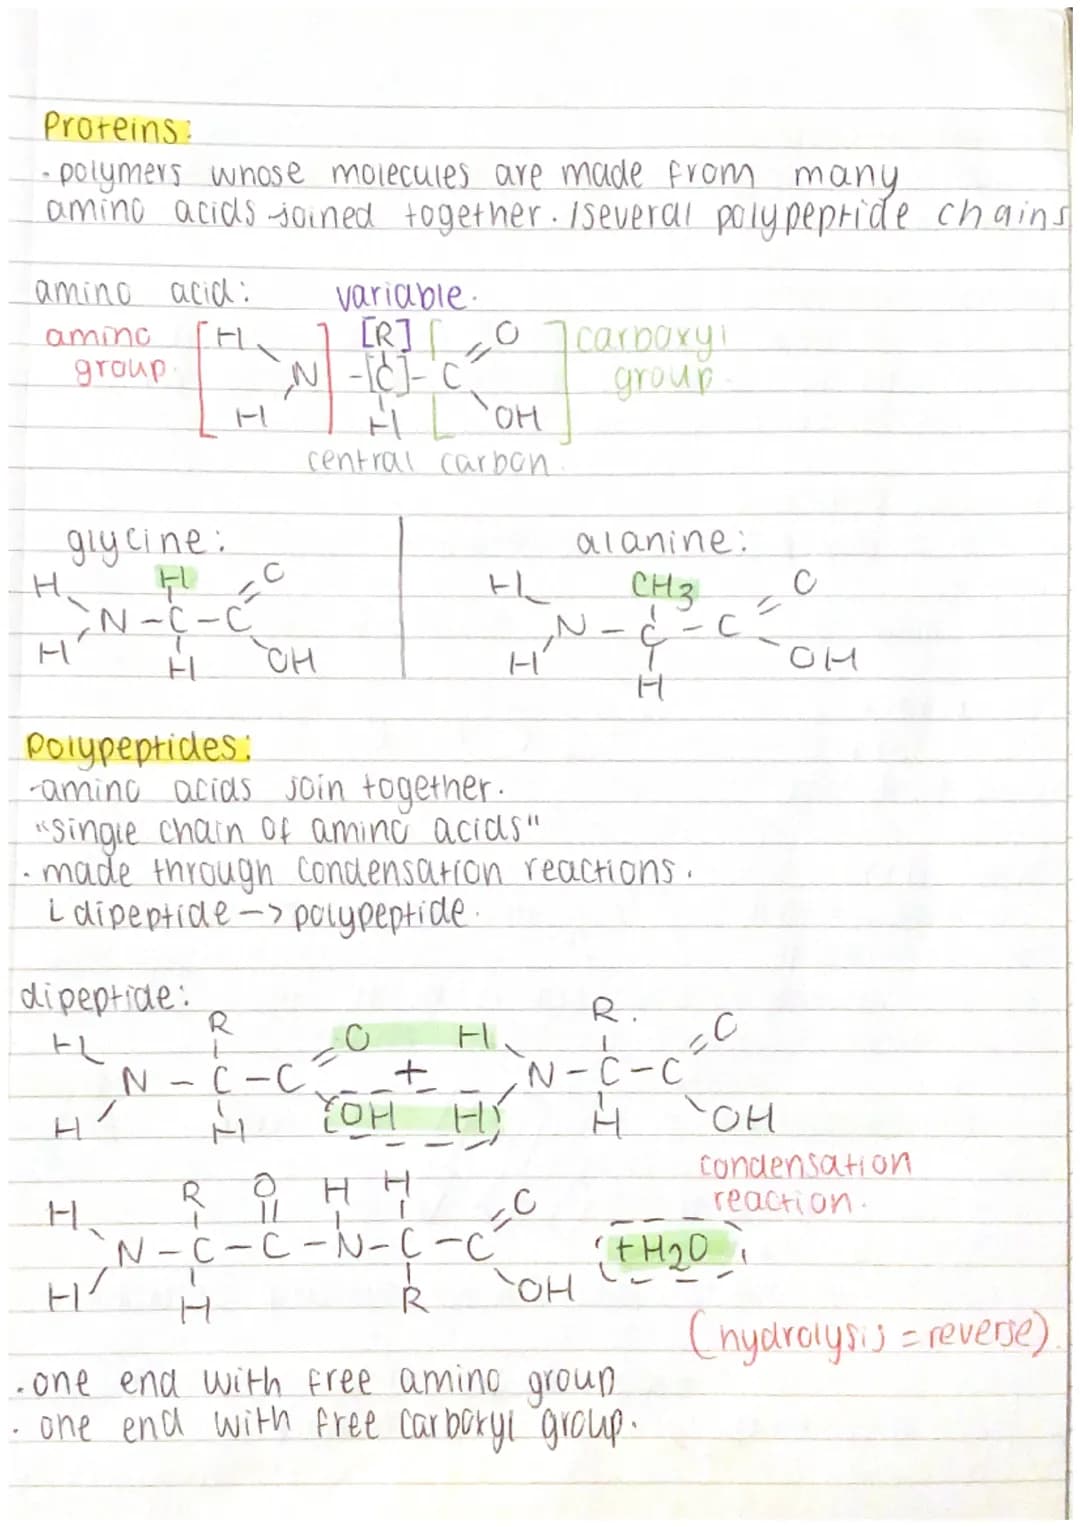 Proteins:
• polymers whose molecules are made from many
amino acids joined together. / several polypeptide chains
amino acid: variable.
amino [H [R] [ O ] carboxyl
group. N] -[C]- C group.
H] H [ OH
central carbon.
glycine: alanine:
H H O H CH3 O
N-C-C N-C-C
H H OH H H OH
Polypeptides:
-amino acids join together.
"single chain of amino acids"
• made through condensation reactions.
L dipeptide -> polypeptide.
dipeptide:
H R O H R. O
N-C-C + N-C-C
H H OH H H OH
condensation
reaction.
H R O H H O
N-C-C-N-C-C +H2O
H H R OH
(hydrolysis = reverse).
• one end with free amino group
• one end with free carboxyl group.